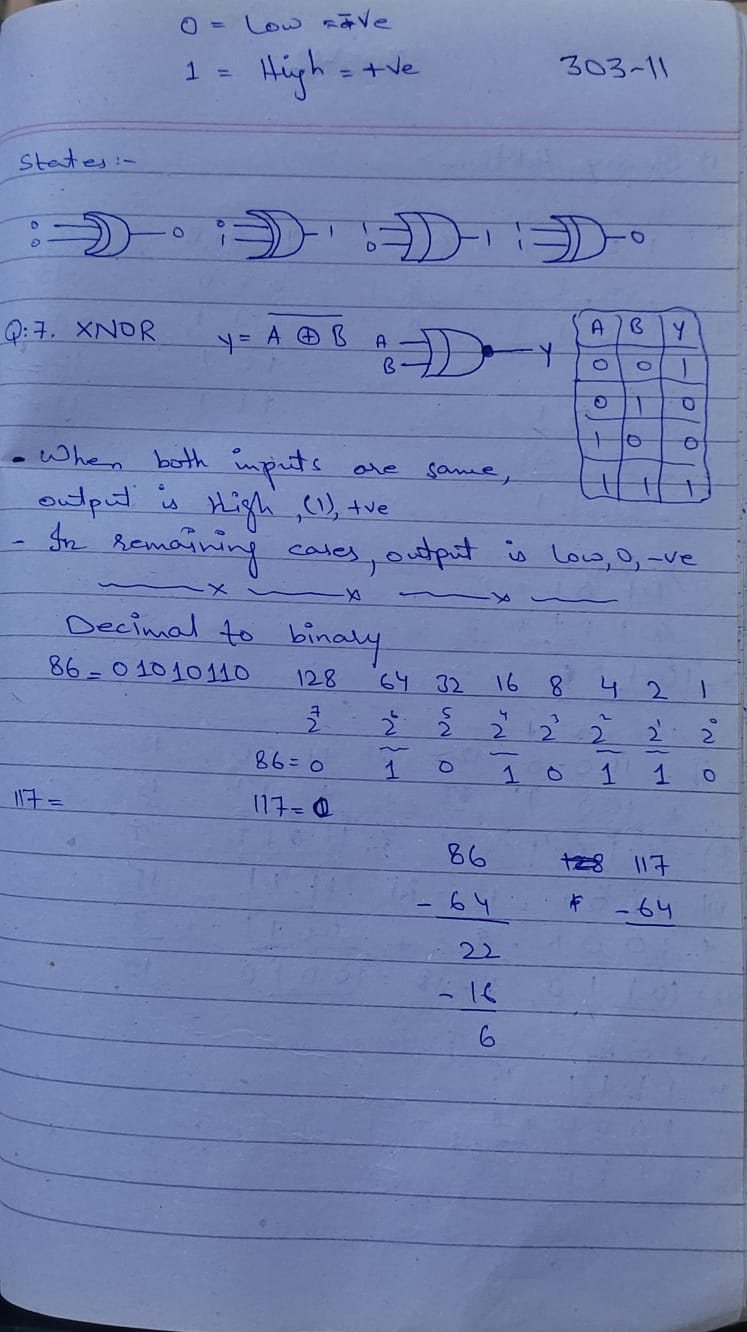 0 = Low = -ve
1 = High = +ve 303-11
States :-
0 0 0 0 1 1 1 0 1 1 1 0
Q:7. XNOR y = A ⊕ B A B Y
A B Y
0 0 1
0 1 0
1 0 0
1 1 1
• When both inputs are same,
output is High, (1), +ve
- In remaining cases, output is low, 0, -ve
x x x
Decimal to binary
86 = 01010110 128 64 32 16 8 4 2 1
2⁷ 2⁶ 2⁵ 2⁴ 2³ 2² 2¹ 2⁰
86 = 0 1 0 1 0 1 1 0
117 = 117 = 0
86 128 117
- 64 - 64
22
- 16
6